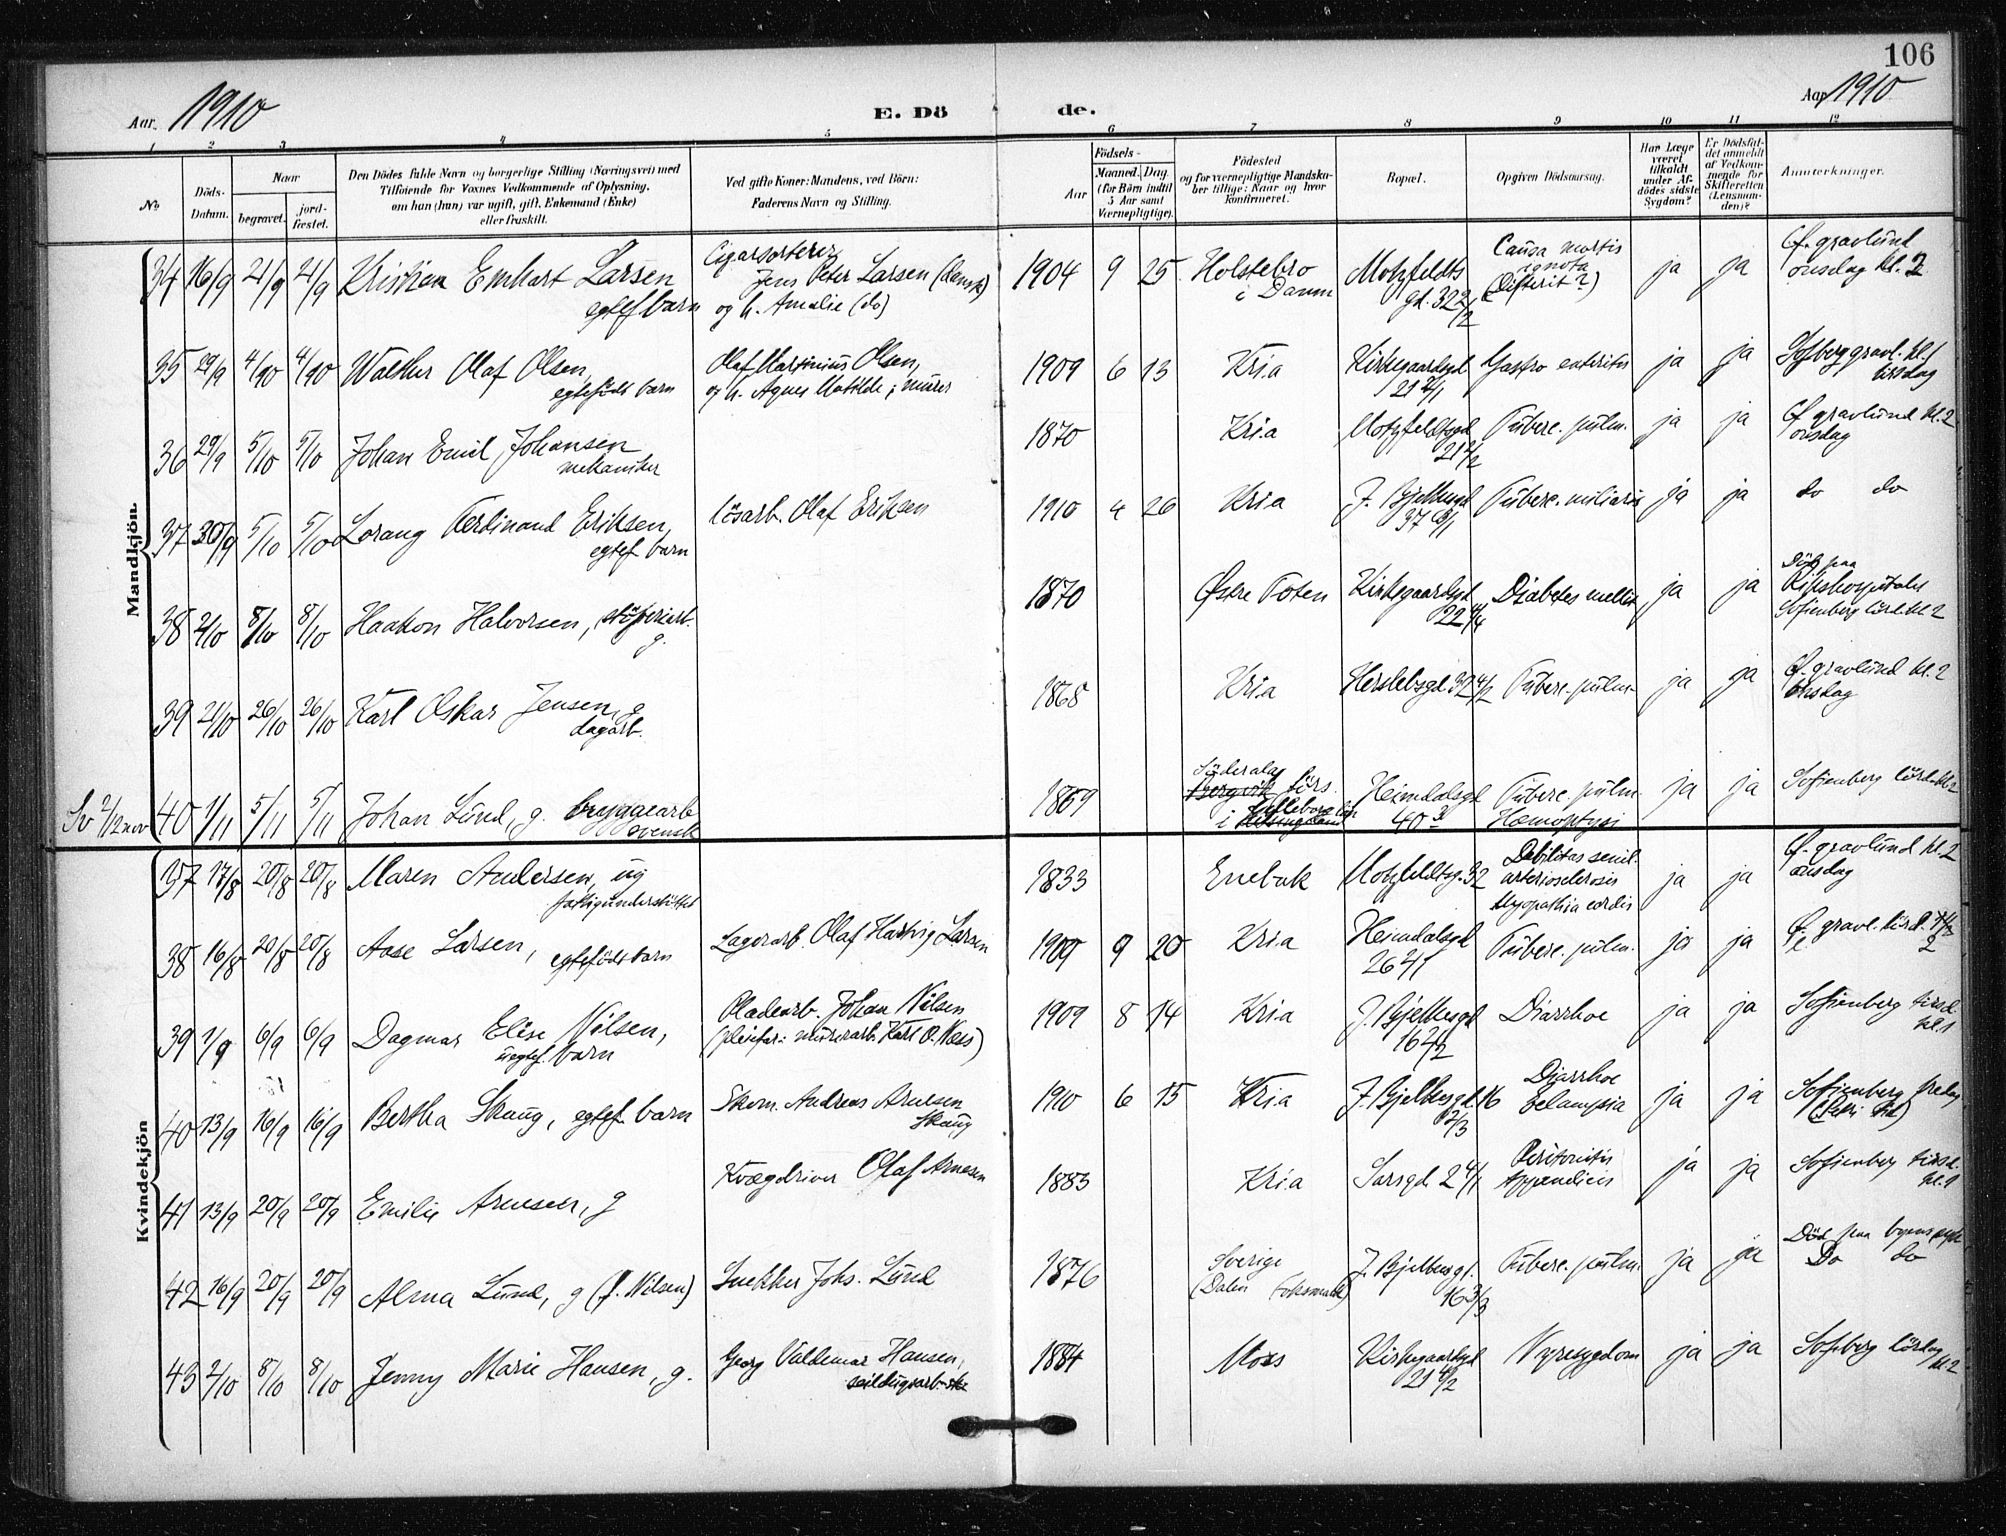 106
Aar. 1910
E. Dö de.
Aar 1910
1 2 3 4 5 6 7 8 9 10 11 12
No
Döds-Datum.
Naar
begravet.
jord-fæstet.
Den Dödes fulde Navn og borgerlige Stilling (Næringsvei) med
Tilföiende for Voxnes Vedkommende af Oplysning,
om han (hun) var ugift, gift, Enkemand (Enke)
eller fraskilt.
Ved gifte Koner: Mandens, ved Börn:
Faderens Navn og Stilling.
Födsels-
Aar
Maaned. Dag.
(for Börn indtil
5 Aar samt
Værnepligtige).
Födested
og for værnepligtige Mandska-
ber tillige: Naar og hvor
konfirmeret.
Bopæl.
Opgiven Dödsaarsag.
Har Læge
været
tilkaldt
under Af-
dödes sidste
Sygdom?
Er Dödsfal-
det anmeldt
af Vedkom-
mende for
Skifteretten
(Lensman-
den)?
Anmærkninger.
Mandkjön.
34 16/9 21/9 21/9 Kristian Emhart Larsen egtef barn Cigarsorterer Jens Peter Larsen (dansk) og h. Amalie (do) 1904 9 25 Holstebro i Danm Motzfeldts gd. 32 2/2 Causa mortis ignota (Difterit?) ja ja Ø. gravlund onsdag kl. 2
35 29/9 4/10 4/10 Walther Olaf Olsen, egtefödt barn Olaf Martinius Olsen, og h. Agnes Matilde; murer 1909 6 13 Kria Kirkegaardsgd 21 Gastro enteritis ja ja Sofberg gravl. kl. 1 tirsdag
36 29/9 5/10 5/10 Johan Emil Johansen mekaniker 1870 Kria Motzfeldtsgd 21 2/2 Tuberc. pulm. ja ja Ø. gravlund kl. 2 onsdag
37 30/9 5/10 5/10 Lorang Ferdinand Eriksen, egtef. barn lösarb. Olaf Eriksen 1910 4 26 Kria J. Bjelkesgd 37 Tuberc. miliaris ja ja do do
38 2/10 8/10 8/10 Haakon Halvorsen, støperiarb. g. 1870 Østre Toten Kirkegaardsgd 22 4/4 Diabetes mellit ja ja Död paa Rikshospitalet Sofienberg lörd kl. 2
39 21/10 26/10 26/10 Karl Oskar Jensen, g dagarb. 1868 Kria Herslebsgd 32 4/2 Tuberc. pulm. ja ja Ø. gravlund kl. 2 onsdag
Sv 2/12 nov 40 1/11 5/11 5/11 Johan Lund, g. bryggearb svensk 1869 Söderala Bergvik förs. i Gefleborg län Helsingland Heimdalsgd 40 3 Tuberc. pulm. Hæmoptysi ja ja Sofienberg lörd. kl 2
Kvindekjön
37 17/8 20/8 20/8 Maren Andersen, ug fattigunderstöttet 1833 Enebak Motzfeldtsg. 32 Debilitas senil. arteriosclerosis Myopathia cordis ja ja Ø. gravlund kl. 2 onsdag
38 16/8 20/8 20/8 Aase Larsen, egtefödt barn Lagerarb. Olaf Hartvig Larsen 1909 9 20 Kria Heimdalsgd 26 2/1 Tuberc. pulm. ja ja Ø. gravl. lörd. 2
39 1/9 6/9 6/9 Dagmar Elise Nilsen, uegtef. barn Pladearb. Johan Nilsen (pleiefar: murerarb. Karl O. Næss) 1909 8 14 Kria J. Bjelkesgd 16 2/2 Diarrhoe ja ja Sofienberg tirsd. kl. 1
40 13/9 16/9 16/9 Bertha Skaug, egtef. barn Skom. Andreas Arnesen Skaug 1910 6 15 Kria J. Bjelkesgd. 16 2/3 Diarrhoe Eclampsia ja ja Sofienberg fredag
41 13/9 20/9 20/9 Emilie Arnesen, g Kvægdriver Olaf Arnesen 1883 Kria Sarsgd. 2 4/1 Peritonitis Appendicis ja ja Sofienberg tirsd. kl. 1
42 16/9 20/9 20/9 Alma Lund, g (f. Nilsen) Snekker Johs. Lund 1876 Sverige (Dalen Foksmark) J. Bjelkesgd. 16 3/3 Tuberc. pulm. ja ja Död paa byens Do do
43 2/10 8/10 8/10 Jenny Marie Hansen, g. Georg Valdemar Hansen, seildugsarb. 1884 Moss Kirkegaardsgd 21 4/2 Nyresygdom ja ja Sofberg lördag kl. 2